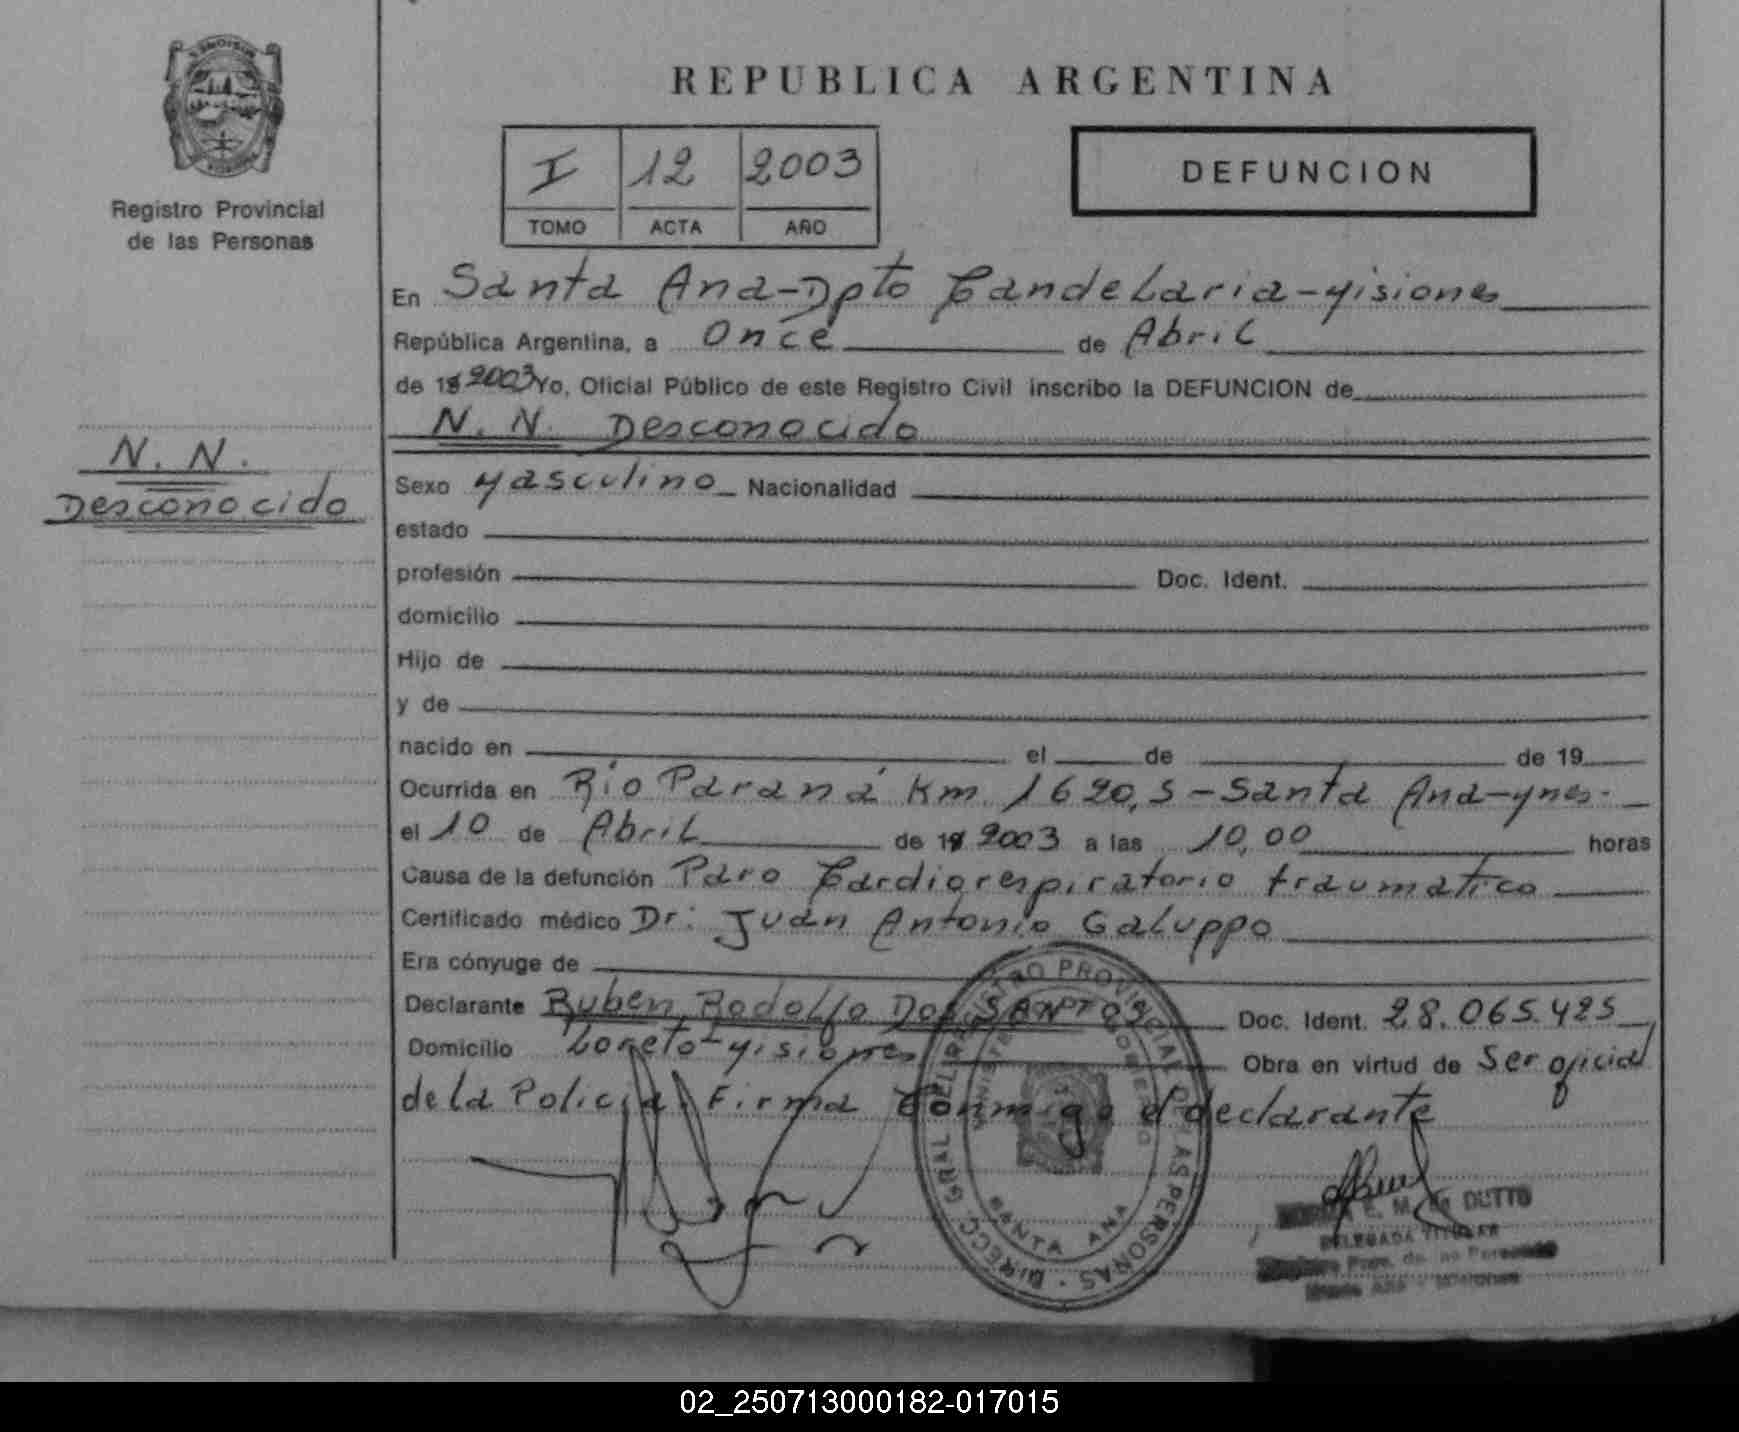 REPUBLICA ARGENTINA
MISIONES
Registro Provincial
de las Personas
I 12 2003
TOMO ACTA AÑO
DEFUNCION
En Santa Ana-Dpto Candelaria-Misiones
República Argentina, a Once de Abril
de 19 2003 Yo, Oficial Público de este Registro Civil inscribo la DEFUNCION de
N. N. Desconocido
N. N.
Desconocido
Sexo Masculino Nacionalidad
estado
profesión Doc. Ident.
domicilio
Hijo de
y de
nacido en el de de 19
Ocurrida en Río Paraná Km 1620,5-Santa Ana-Mnes.
el 10 de Abril de 19 2003 a las 10,00 horas
Causa de la defunción Paro Cardiorespiratorio traumatico
Certificado médico Dr: Juan Antonio Galuppo
Era cónyuge de
Declarante Ruben Rodolfo Dos SANTOS Doc. Ident. 28.065.425
Domicilio Loreto-Misiones Obra en virtud de Ser oficial
de la Policia. Firma Conmigo el declarante
DIRECC. GRAL. DEL REGISTRO PROVINCIAL DE LAS PERSONAS
SANTA ANA
E. M. DUTTO
DELEGADA TITULAR
Santa Ana - Misiones
02_250713000182-017015